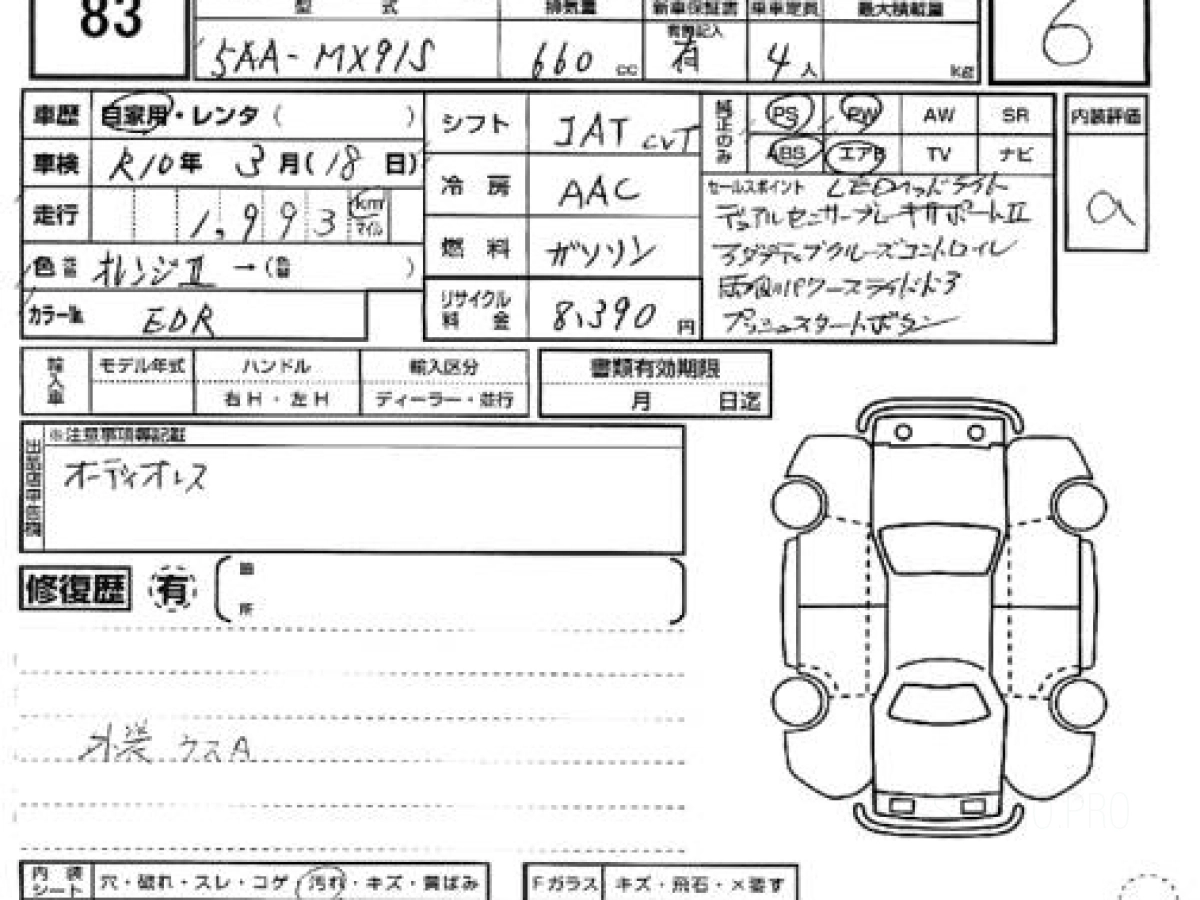 83
型 式
排気量
新車保証書
乗車定員
最大積載量
有無記入
5AA-MX91S
660 cc
有
4人
kg
6
車歴 自家用・レンタ ( )
車検 R10年 3月(18日)
走行 1,993 km マイル
色 オレンジII →( )
カラー№ EDR
シフト IAT CVT
冷房 AAC
燃料 ガソリン
リサイクル料金 8,390円
純正のみ
PS PW AW SR
ABS エアB TV ナビ
セールスポイント LEDヘッドライト
デュアルセンサーブレーキサポートII
アダプティブクルーズコントロール
両側パワースライドドア
プッシュスタートボタン
内装評価
a
輸入車
モデル年式
ハンドル
右H・左H
輸入区分
ディーラー・並行
書類有効期限
月 日迄
※注意事項等記載
オーディオレス
修復歴 有
箇所
外装 ウスA
内装シート 穴・破れ・スレ・コゲ・汚れ・キズ・黄ばみ
Fガラス キズ・飛石・×要す
O.PRO